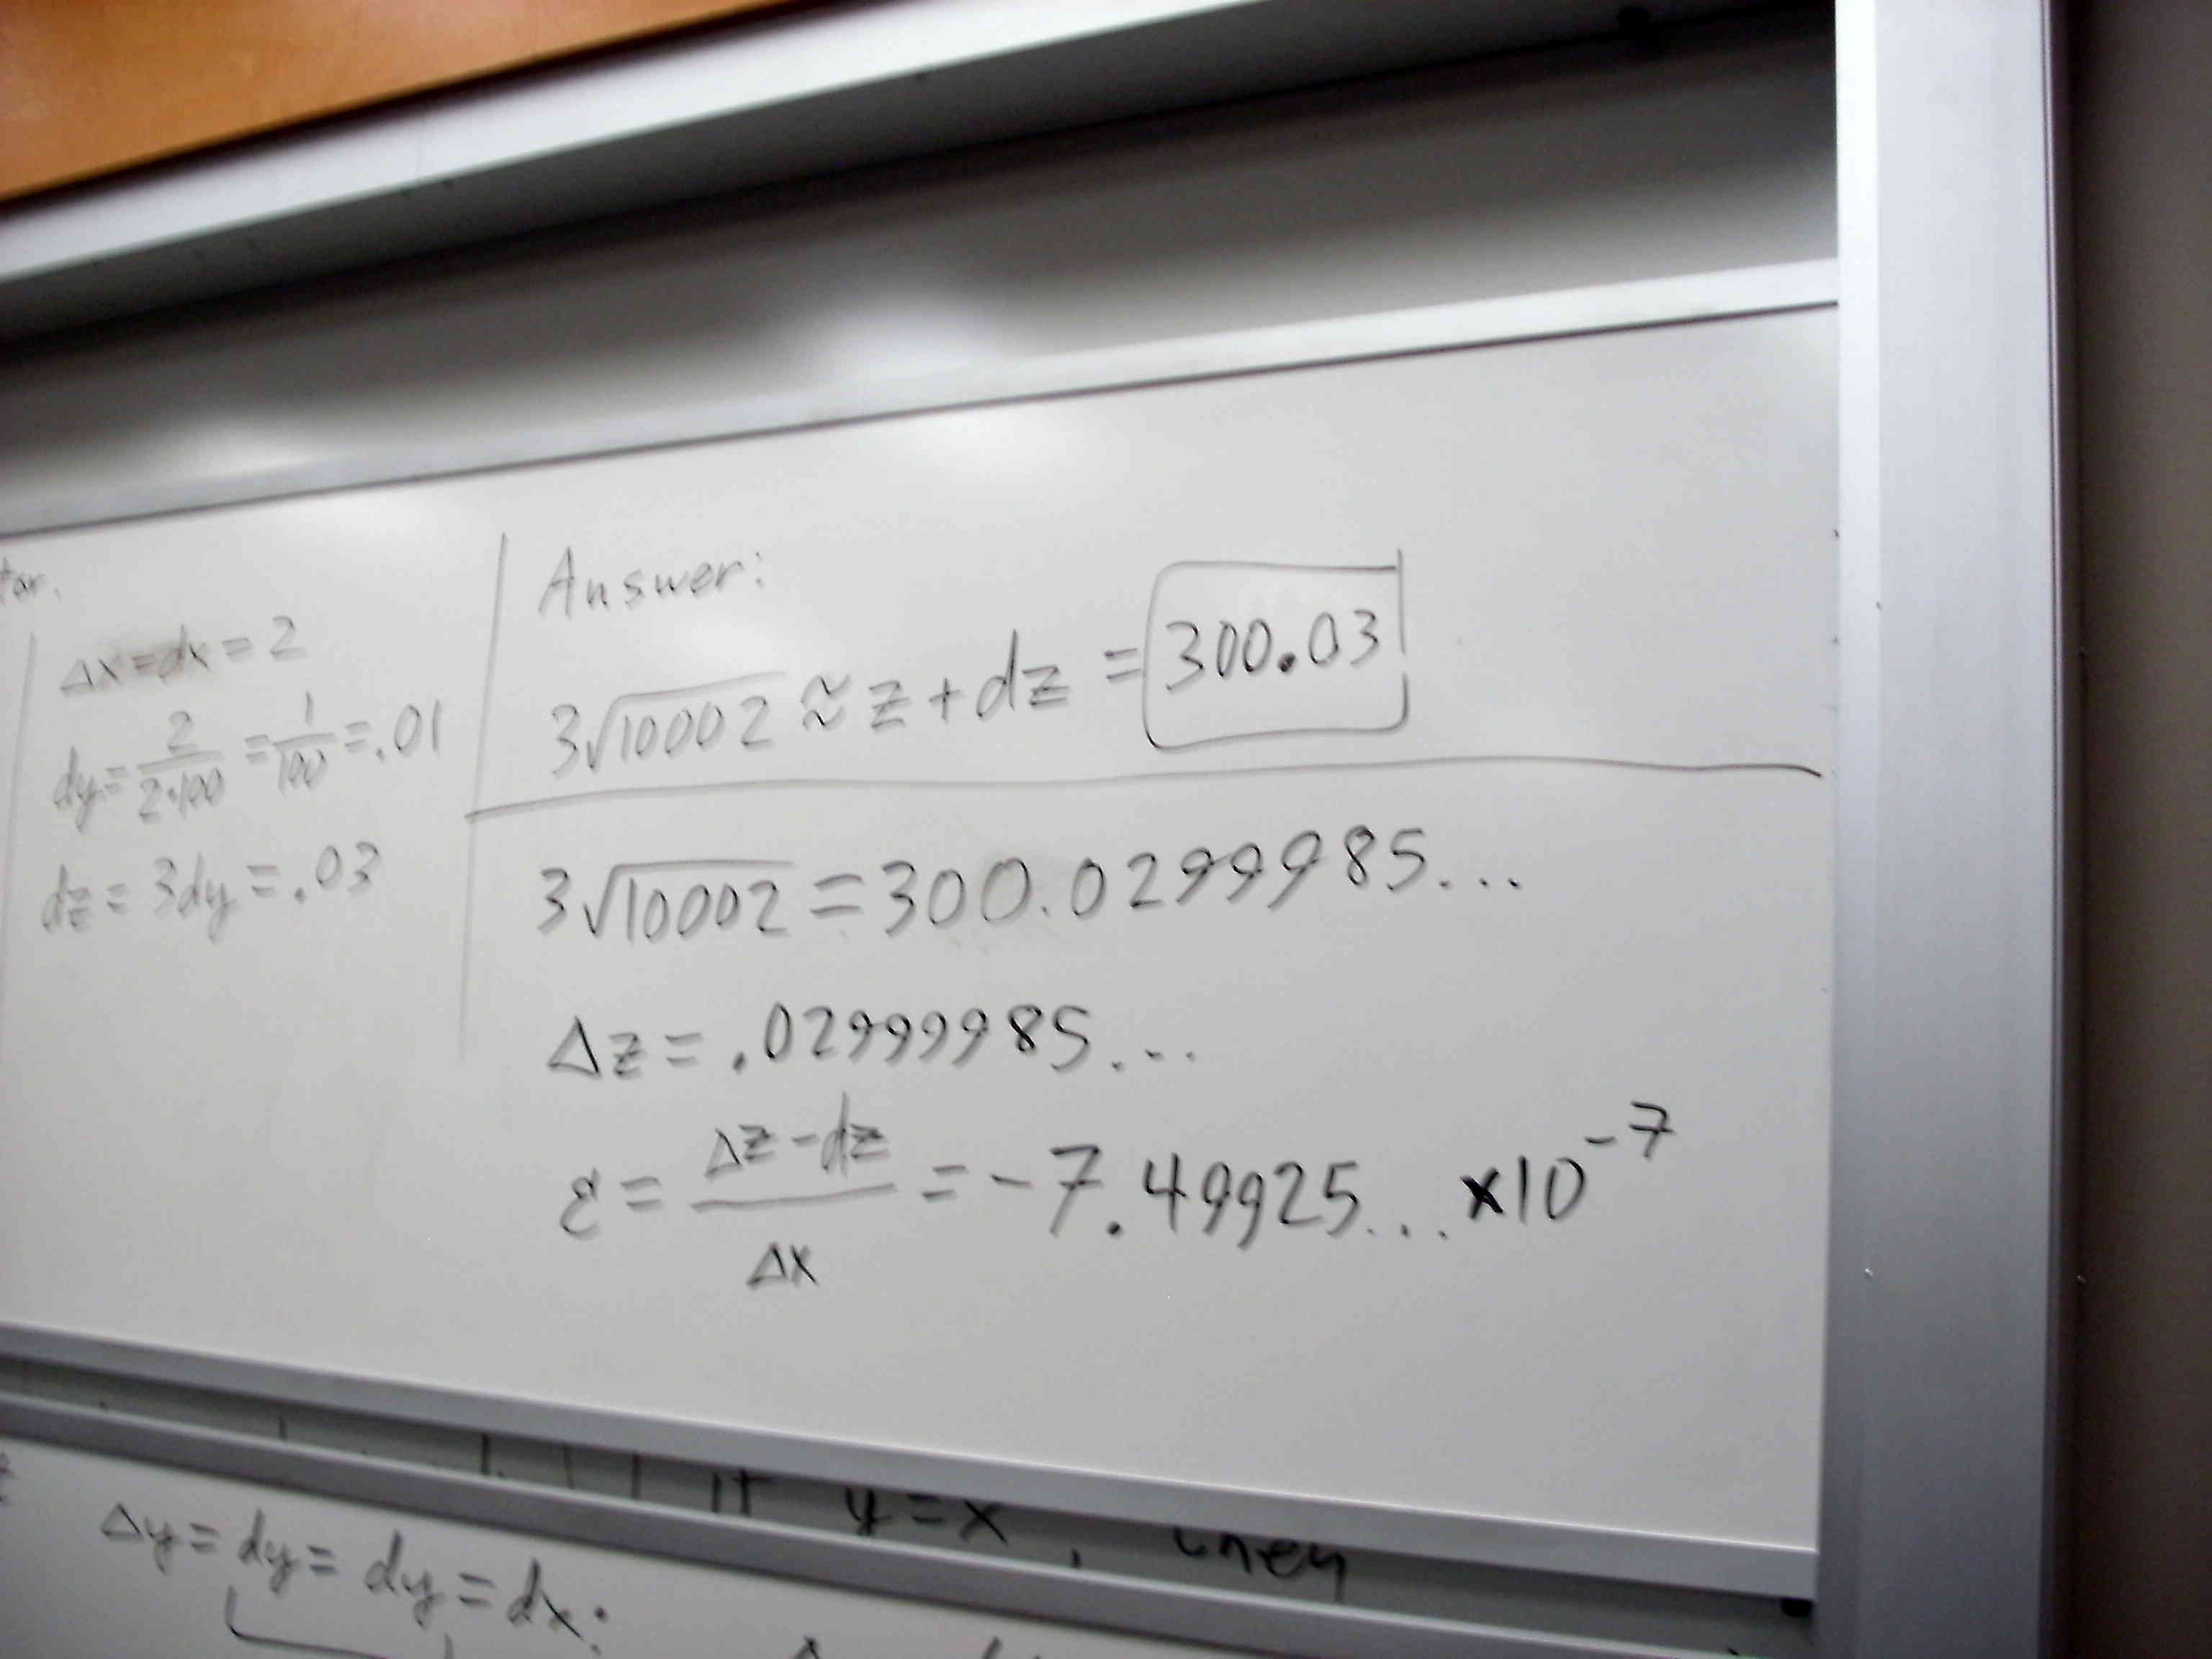 tor.
Δx=dx=2
dy=2/2·100=1/100=.01
dz=3dy=.03
Answer:
3√10002≈z+dz=300.03
3√10002=300.0299985...
Δz=.02999985...
ε=Δz-dz/Δx=-7.49925...×10^-7
if y=x, then
Δy=dy=dy=dx: